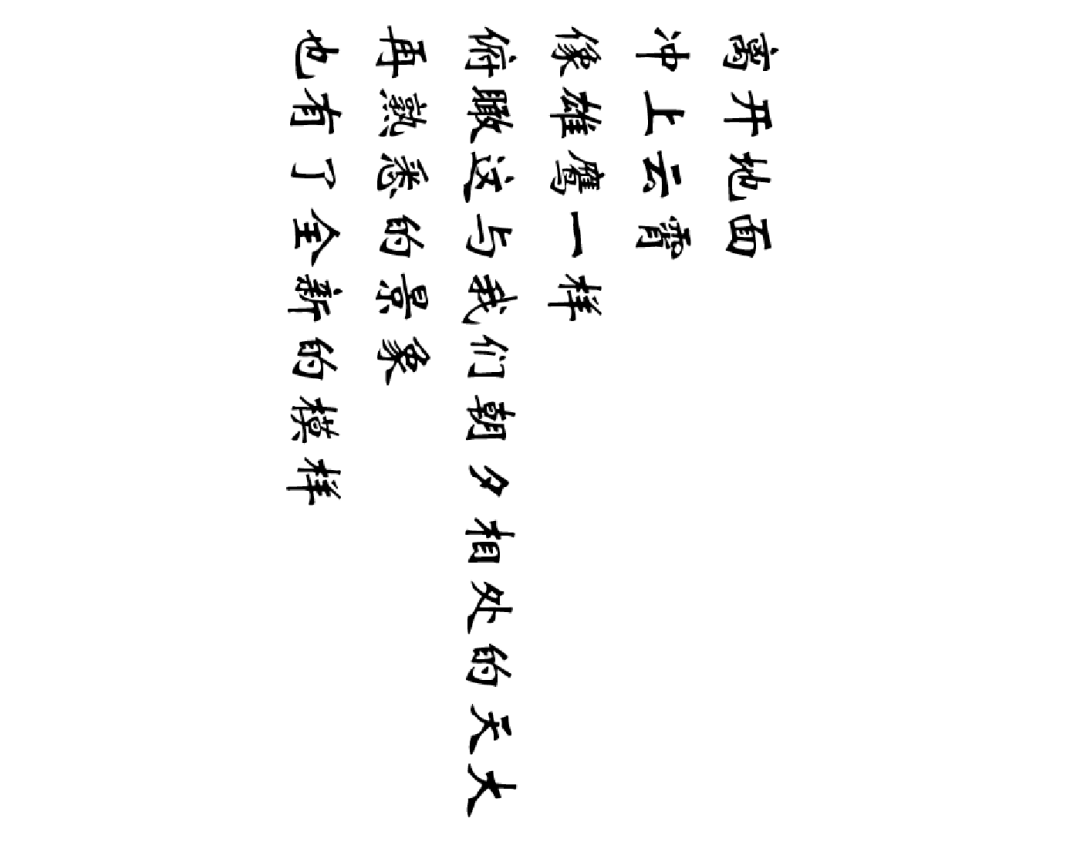 离开地面
冲上云霄
像雄鹰一样
俯瞰这与我们朝夕相处的天大
再熟悉的景象
也有了全新的模样